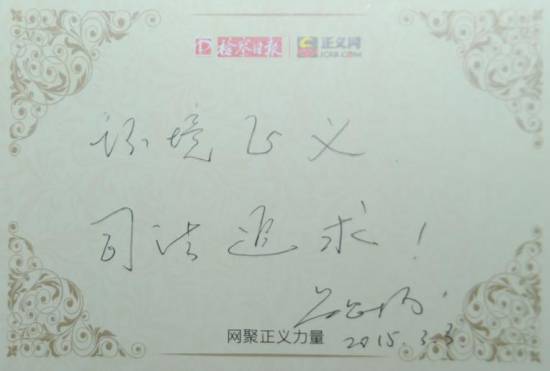 检察日报 正义网
JCRB.COM
环境正义
司法追求！
网聚正义力量
2015.3.3